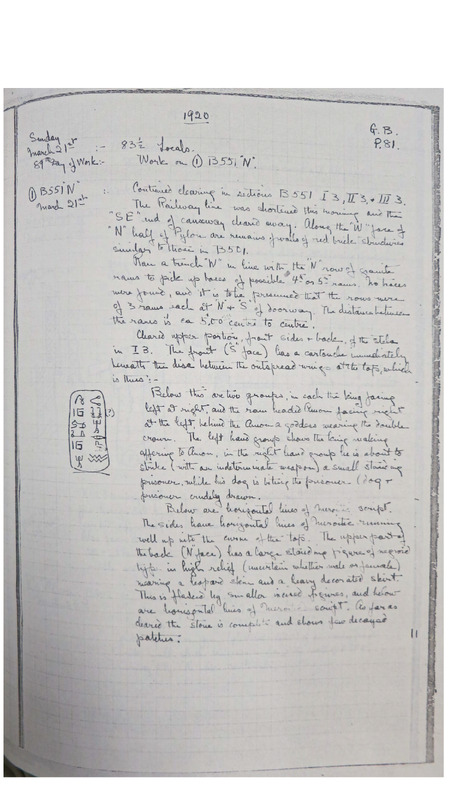 1920
G.B.
P.81.
Sunday
March 21st :- 83½ Locals.
89th Day of Work:- Work on ① B551 "N".
① B551 "N" :
March 21st
Continued clearing in sections B551 I 3, II 3, + III 3.
The Railway line was shortened this morning and the
"SE" end of causeway cleared away. Along the "W" face of
"N" half of Pylon are remains of walls of red brick structures
similar to those in B501.
Ran a trench "N" in line with the "N" row of granite
rams to pick up bases of possible 4th or 5th rams. No bases
were found, and it is to be presumed that the rows were
of 3 rams each at N + S of doorway. The distance between
the rams is ca 5.00 centre to centre.
Cleared upper portion, front sides + back, of the stela
in I 3. The front (S face) has a cartouche immediately
beneath the disc between the outspread wings at the top, which
is thus:-
(?)
Below this are two groups, in each the king facing
left at right, and the ram headed Amon facing right
at the left, behind the Amon a goddess wearing the double
crown. The left hand group shows the king making
offering to Amon, in the right hand group he is about to
strike (with an indeterminate weapon) a small standing
prisoner, while his dog is biting the prisoner. (dog +
prisoner crudely drawn.
Below are horizontal lines of Meroitic script.
The sides have horizontal lines of Meroitic running
well up into the curve of the top. The upper part of
the back (N face) has a large standing figure of negroid
type in high relief (uncertain whether male or female)
wearing a leopard skin and a heavy decorated skirt.
This is flanked by smaller incised figures, and below
are horizontal lines of Meroitic script. As far as
cleared the stone is complete and shows few decayed
patches.
11